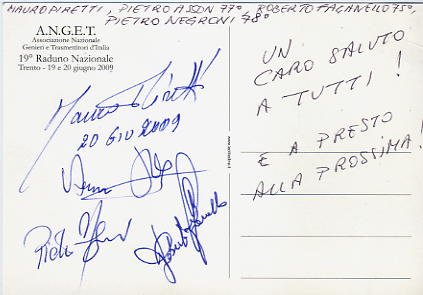 MAURO PIRETTI, PIETRO ASON 77°, ROBERTO PAGANELLO 75°,
PIETRO NEGRONI 48°
A.N.G.E.T.
Associazione Nazionale
Genieri e Trasmettitori d'Italia
19° Raduno Nazionale
Trento - 19 e 20 giugno 2009
20 GIU 2009
UN
CARO SALUTO
A TUTTI !
E A PRESTO
ALLA PROSSIMA!